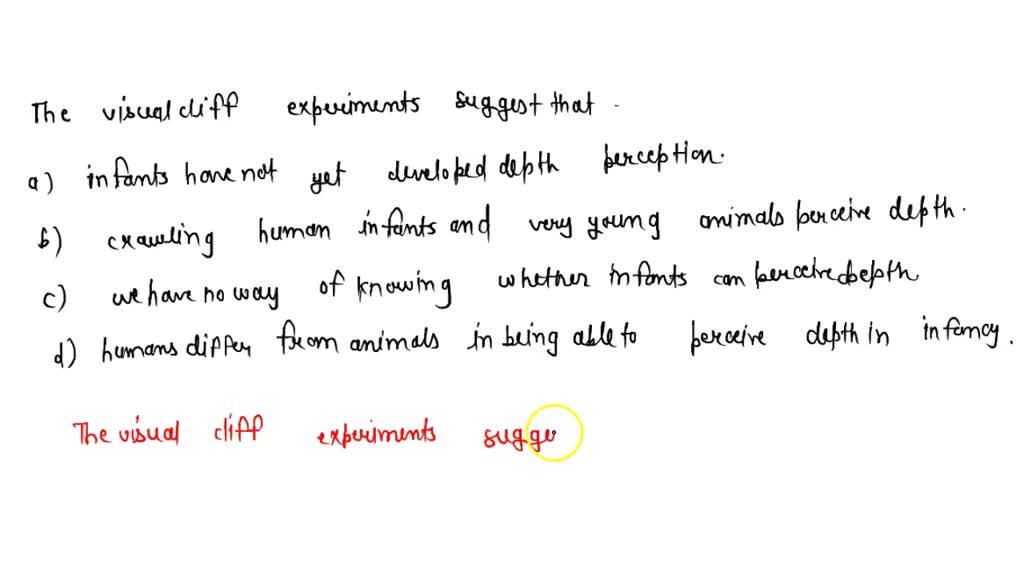 The visual cliff experiments suggest that.
a) infants have not yet developed depth perception.
b) crawling human infants and very young animals perceive depth.
c) we have no way of knowing whether infants can perceive depth
d) humans differ from animals in being able to perceive depth in infancy.
The visual cliff experiments sugge